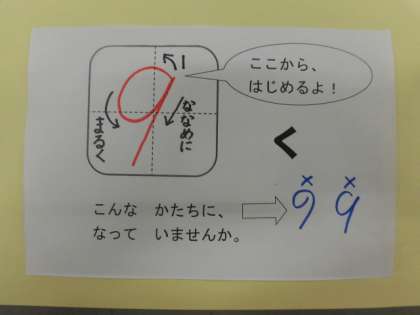 ここから、
はじめるよ！
1
ななめに
まるく
9
く
こんな かたちに、
なって いませんか。
× ×
9 9